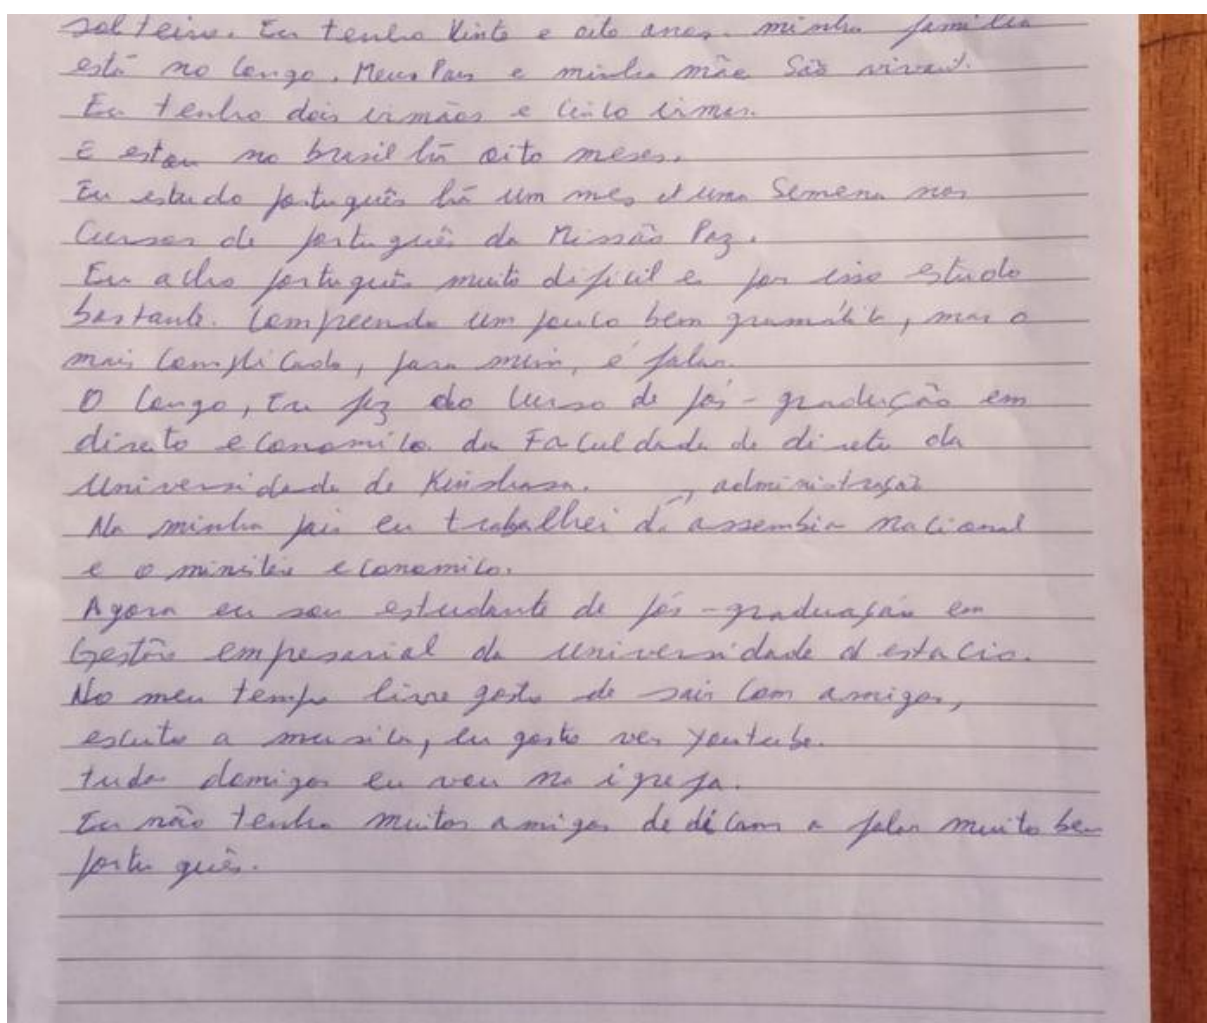 solteiro. Eu tenho Vinte e oito anos. minha familia
está no Congo. Meus Pais e minha mãe São vivant.
Eu tenho dois irmãos e Cinco irmes.
E estou no brasil há oito meses.
Eu estudo português há um mes et uma Semena nos
Cursos de português da Missão Paz.
Eu acho português muito dificil e por isso estudo
bastante. Compreendo um pouco bem gramátik, mas o
mais Complicado, para mim, é falar.
O Congo, Eu fiz do Curso de pós-gradução em
direito economico da Faculdade de direto da
Universidade de Kinshasa. , administração
Na minha pais eu trabalhei da assembia Nacional
e o ministéio economico.
Agora eu sou estudante de pós-graduação em
Gestão empesarial da universidade d estacio.
No meu tempo livre gosto de sair Com amigos,
escuto a musica, eu gosto ver youtube.
tudos domigos eu vou na igreja.
Eu não tenho muitos amigos de dicam a falar muito bem
português.